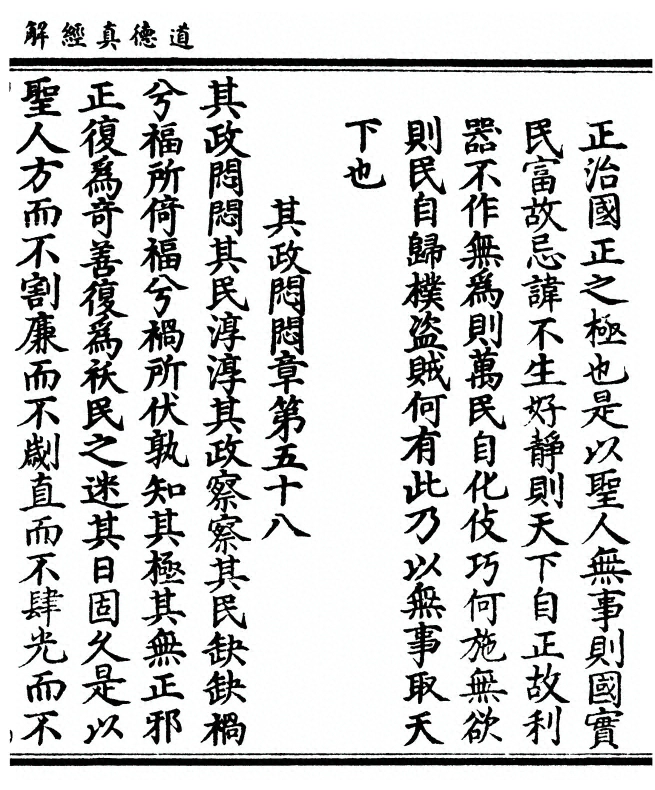 道德真經解
正治國正之極也是以聖人無事則國實
民富故忌諱不生好靜則天下自正故利
器不作無爲則萬民自化伎巧何施無欲
則民自歸樸盜賊何有此乃以無事取天
下也
其政悶悶章第五十八
其政悶悶其民淳淳其政察察其民缺缺禍
兮福所倚福兮禍所伏孰知其極其無正邪
正復爲奇善復爲祅民之迷其日固久是以
聖人方而不割廉而不劌直而不肆光而不